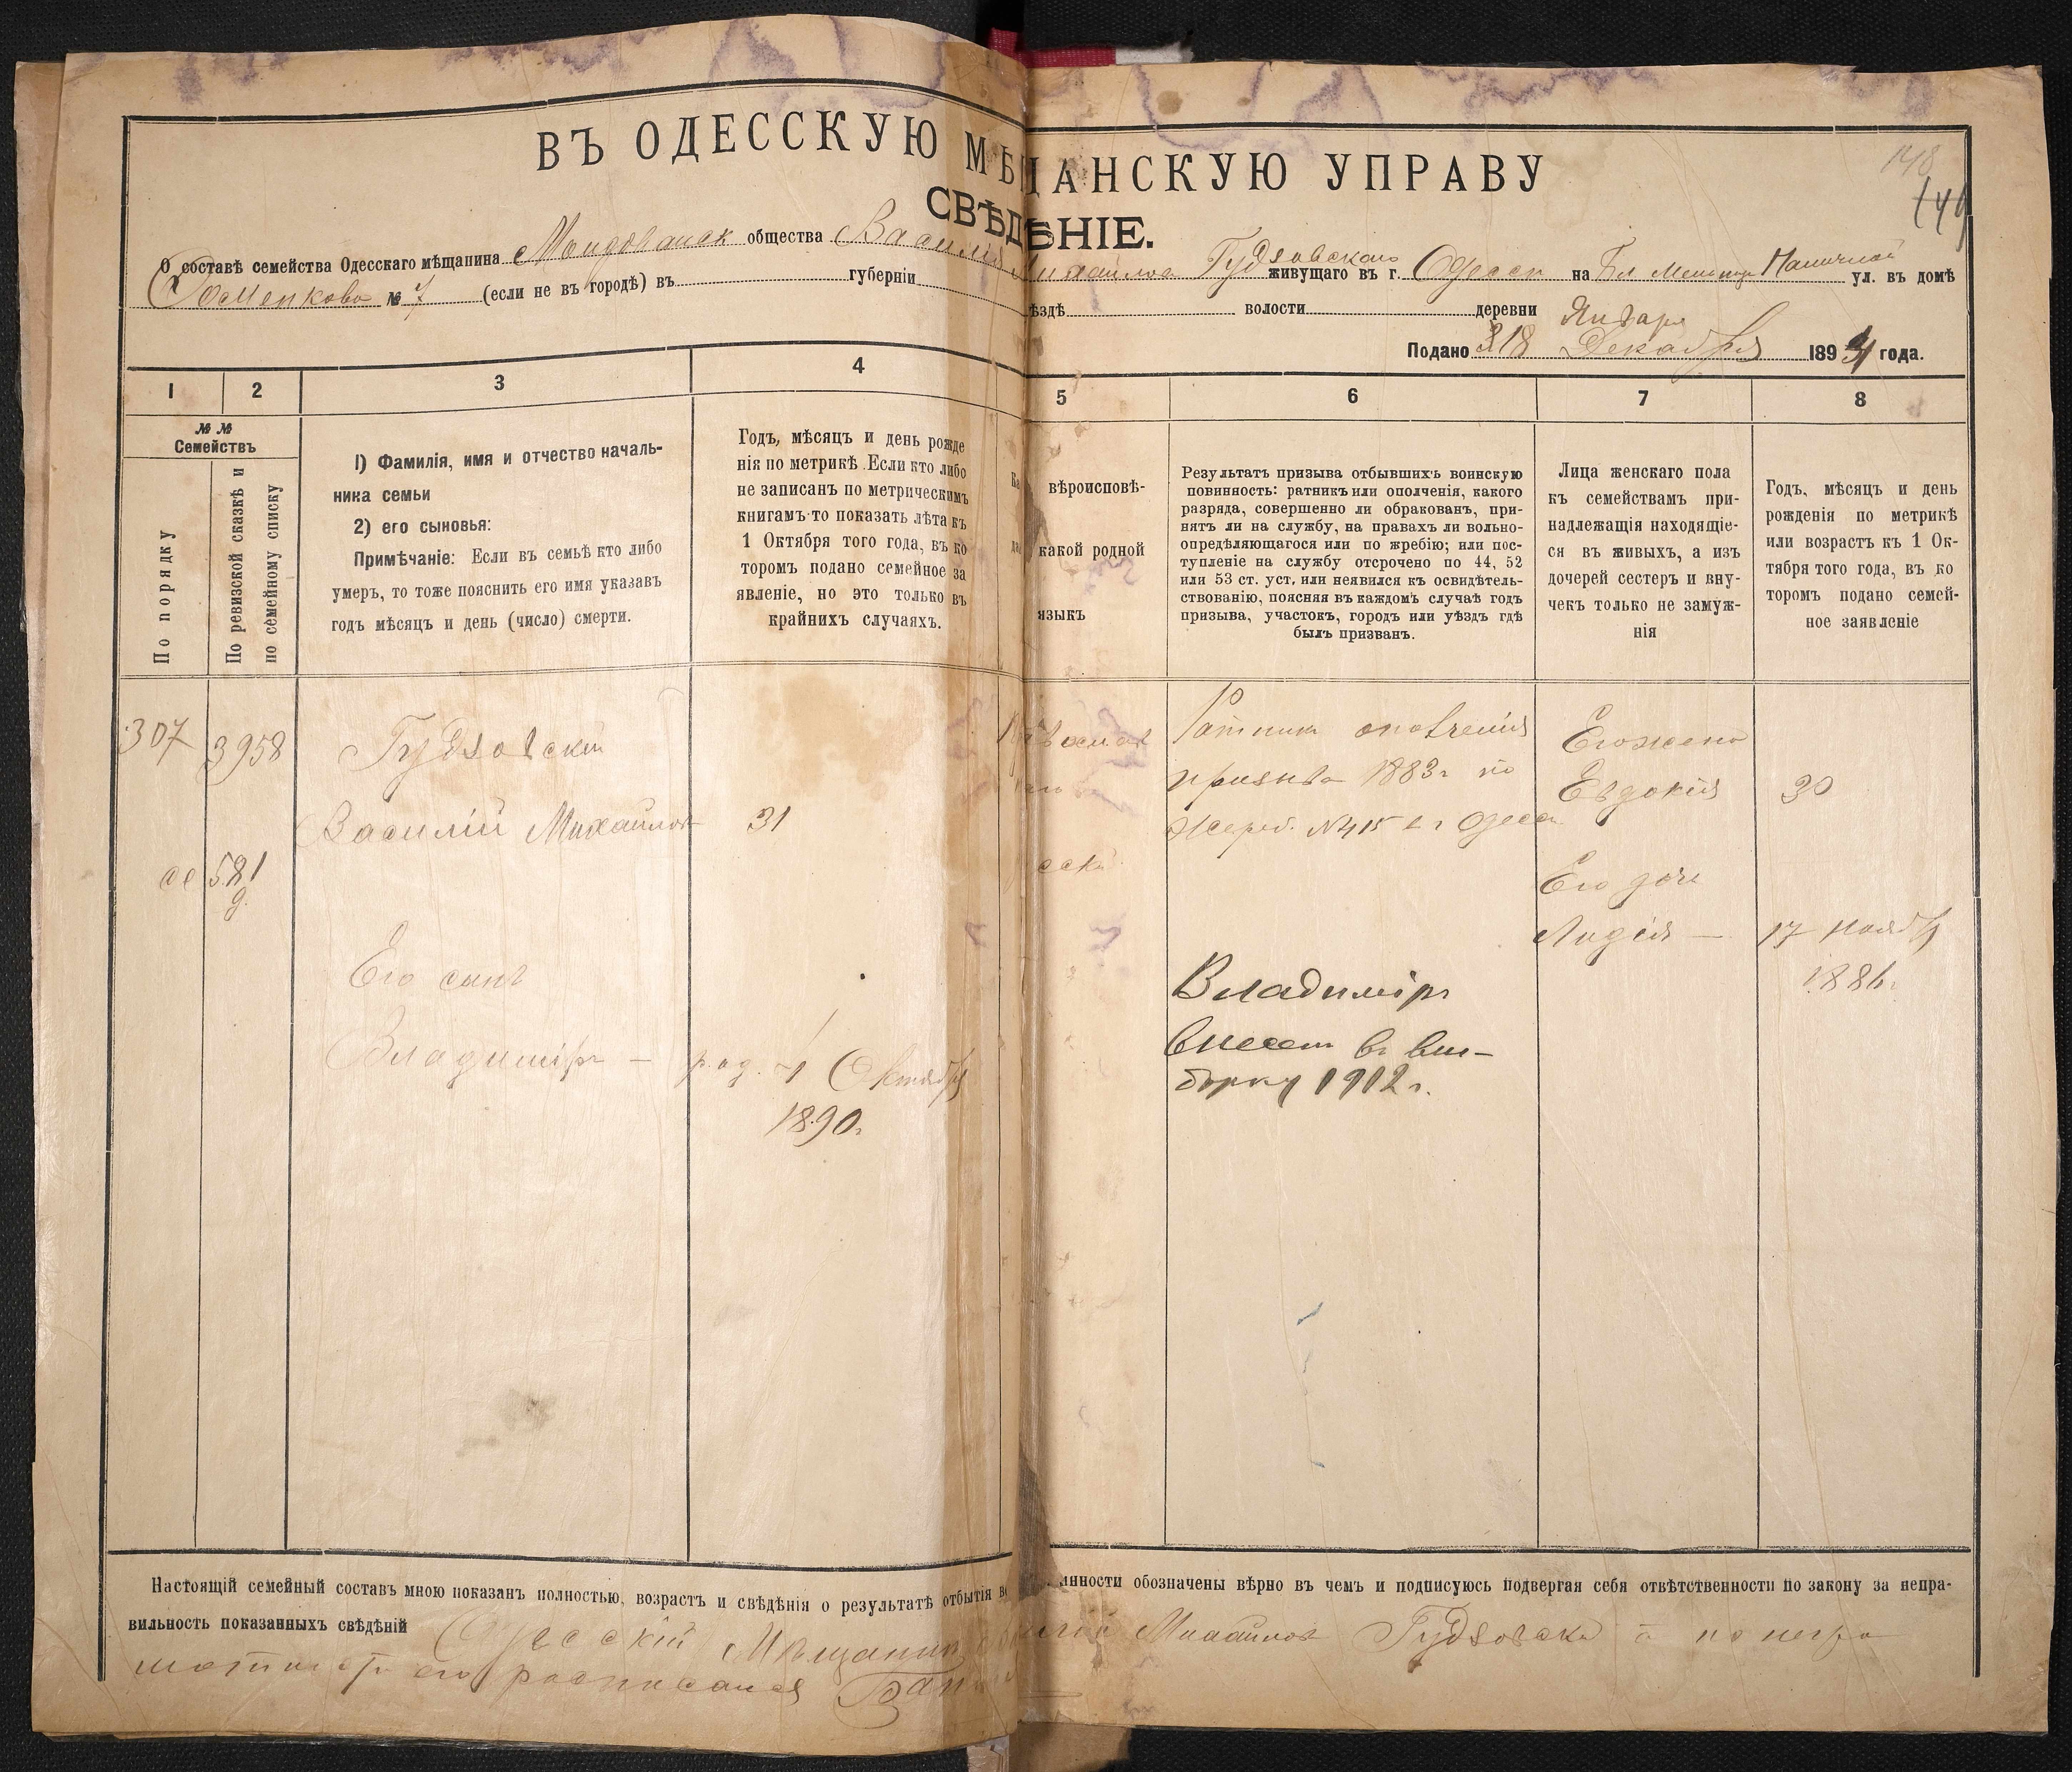 ВЪ ОДЕССКУЮ МѢЩАНСКУЮ УПРАВУ
СВѢДѢНІЕ.
О составѣ семейства Одесскаго мѣщанина общества Василія Михайлова Гудзовскаго живущаго въ г. Одессѣ на ул. въ домѣ
№ 7 (если не въ городѣ) въ губерніи ѣздѣ волости деревни
Января
Подано 18 Декабря 1894 года.
1 2 3 4 5 6 7 8
№ № Семействъ
По порядку
По ревизской сказкѣ и по семейному списку
1) Фамилія, имя и отчество началь-
ника семьи
2) его сыновья:
Примѣчаніе: Если въ семьѣ кто либо
умеръ, то тоже пояснить его имя указавъ
годъ мѣсяцъ и день (число) смерти.
Годъ, мѣсяцъ и день рожде
нія по метрикѣ. Если кто либо
не записанъ по метрическимъ
книгамъ-то показать лѣта къ
1 Октября того года, въ ко
торомъ подано семейное за
явленіе, но это только въ
крайнихъ случаяхъ.
вѣроисповѣ-
какой родной
языкъ
Результатъ призыва отбывшихъ воинскую
повинность: ратникъ или ополченія, какого
разряда, совершенно ли обракованъ, при-
нятъ ли на службу, на правахъ ли вольно-
опредѣляющагося или по жребію; или пос-
тупленіе на службу отсрочено по 44, 52
или 53 ст. уст. или неявился къ освидѣтель-
ствованію, поясняя въ каждомъ случаѣ годъ
призыва, участокъ, городъ или уѣздъ гдѣ
былъ призванъ.
Лица женскаго пола
къ семействамъ при-
надлежащія находящіе-
ся въ живыхъ, а изъ
дочерей сестеръ и вну-
чекъ только не замуж-
нія
Годъ, мѣсяцъ и день
рожденія по метрикѣ
или возрастъ къ 1 Ок-
тября того года, въ ко
торомъ подано семей-
ное заявленіе
307 3958 Гудзовскій
Василій Михайловъ 31
581
Его сынъ
Владиміръ — род. 1 Октября
1890г.
Ратникъ ополченія
призыва 1883г по
жереб. №415 въ г Одессѣ
Владиміръ
внесен въ вы-
борку 1912г.
Его жена
Евдокія 30
Его дочь
Лидія — 17 Ноября
1886г.
Настоящій семейный составъ мною показанъ полностью, возрастъ и свѣдѣнія о результатѣ отбытія во нности обозначены вѣрно въ чемъ и подписуюсь подвергая себя отвѣтственности по закону за непра-
вильность показанныхъ свѣдѣній Одесскій Мѣщанинъ Михайловъ Гудзовскій а по негра
мотности его росписался